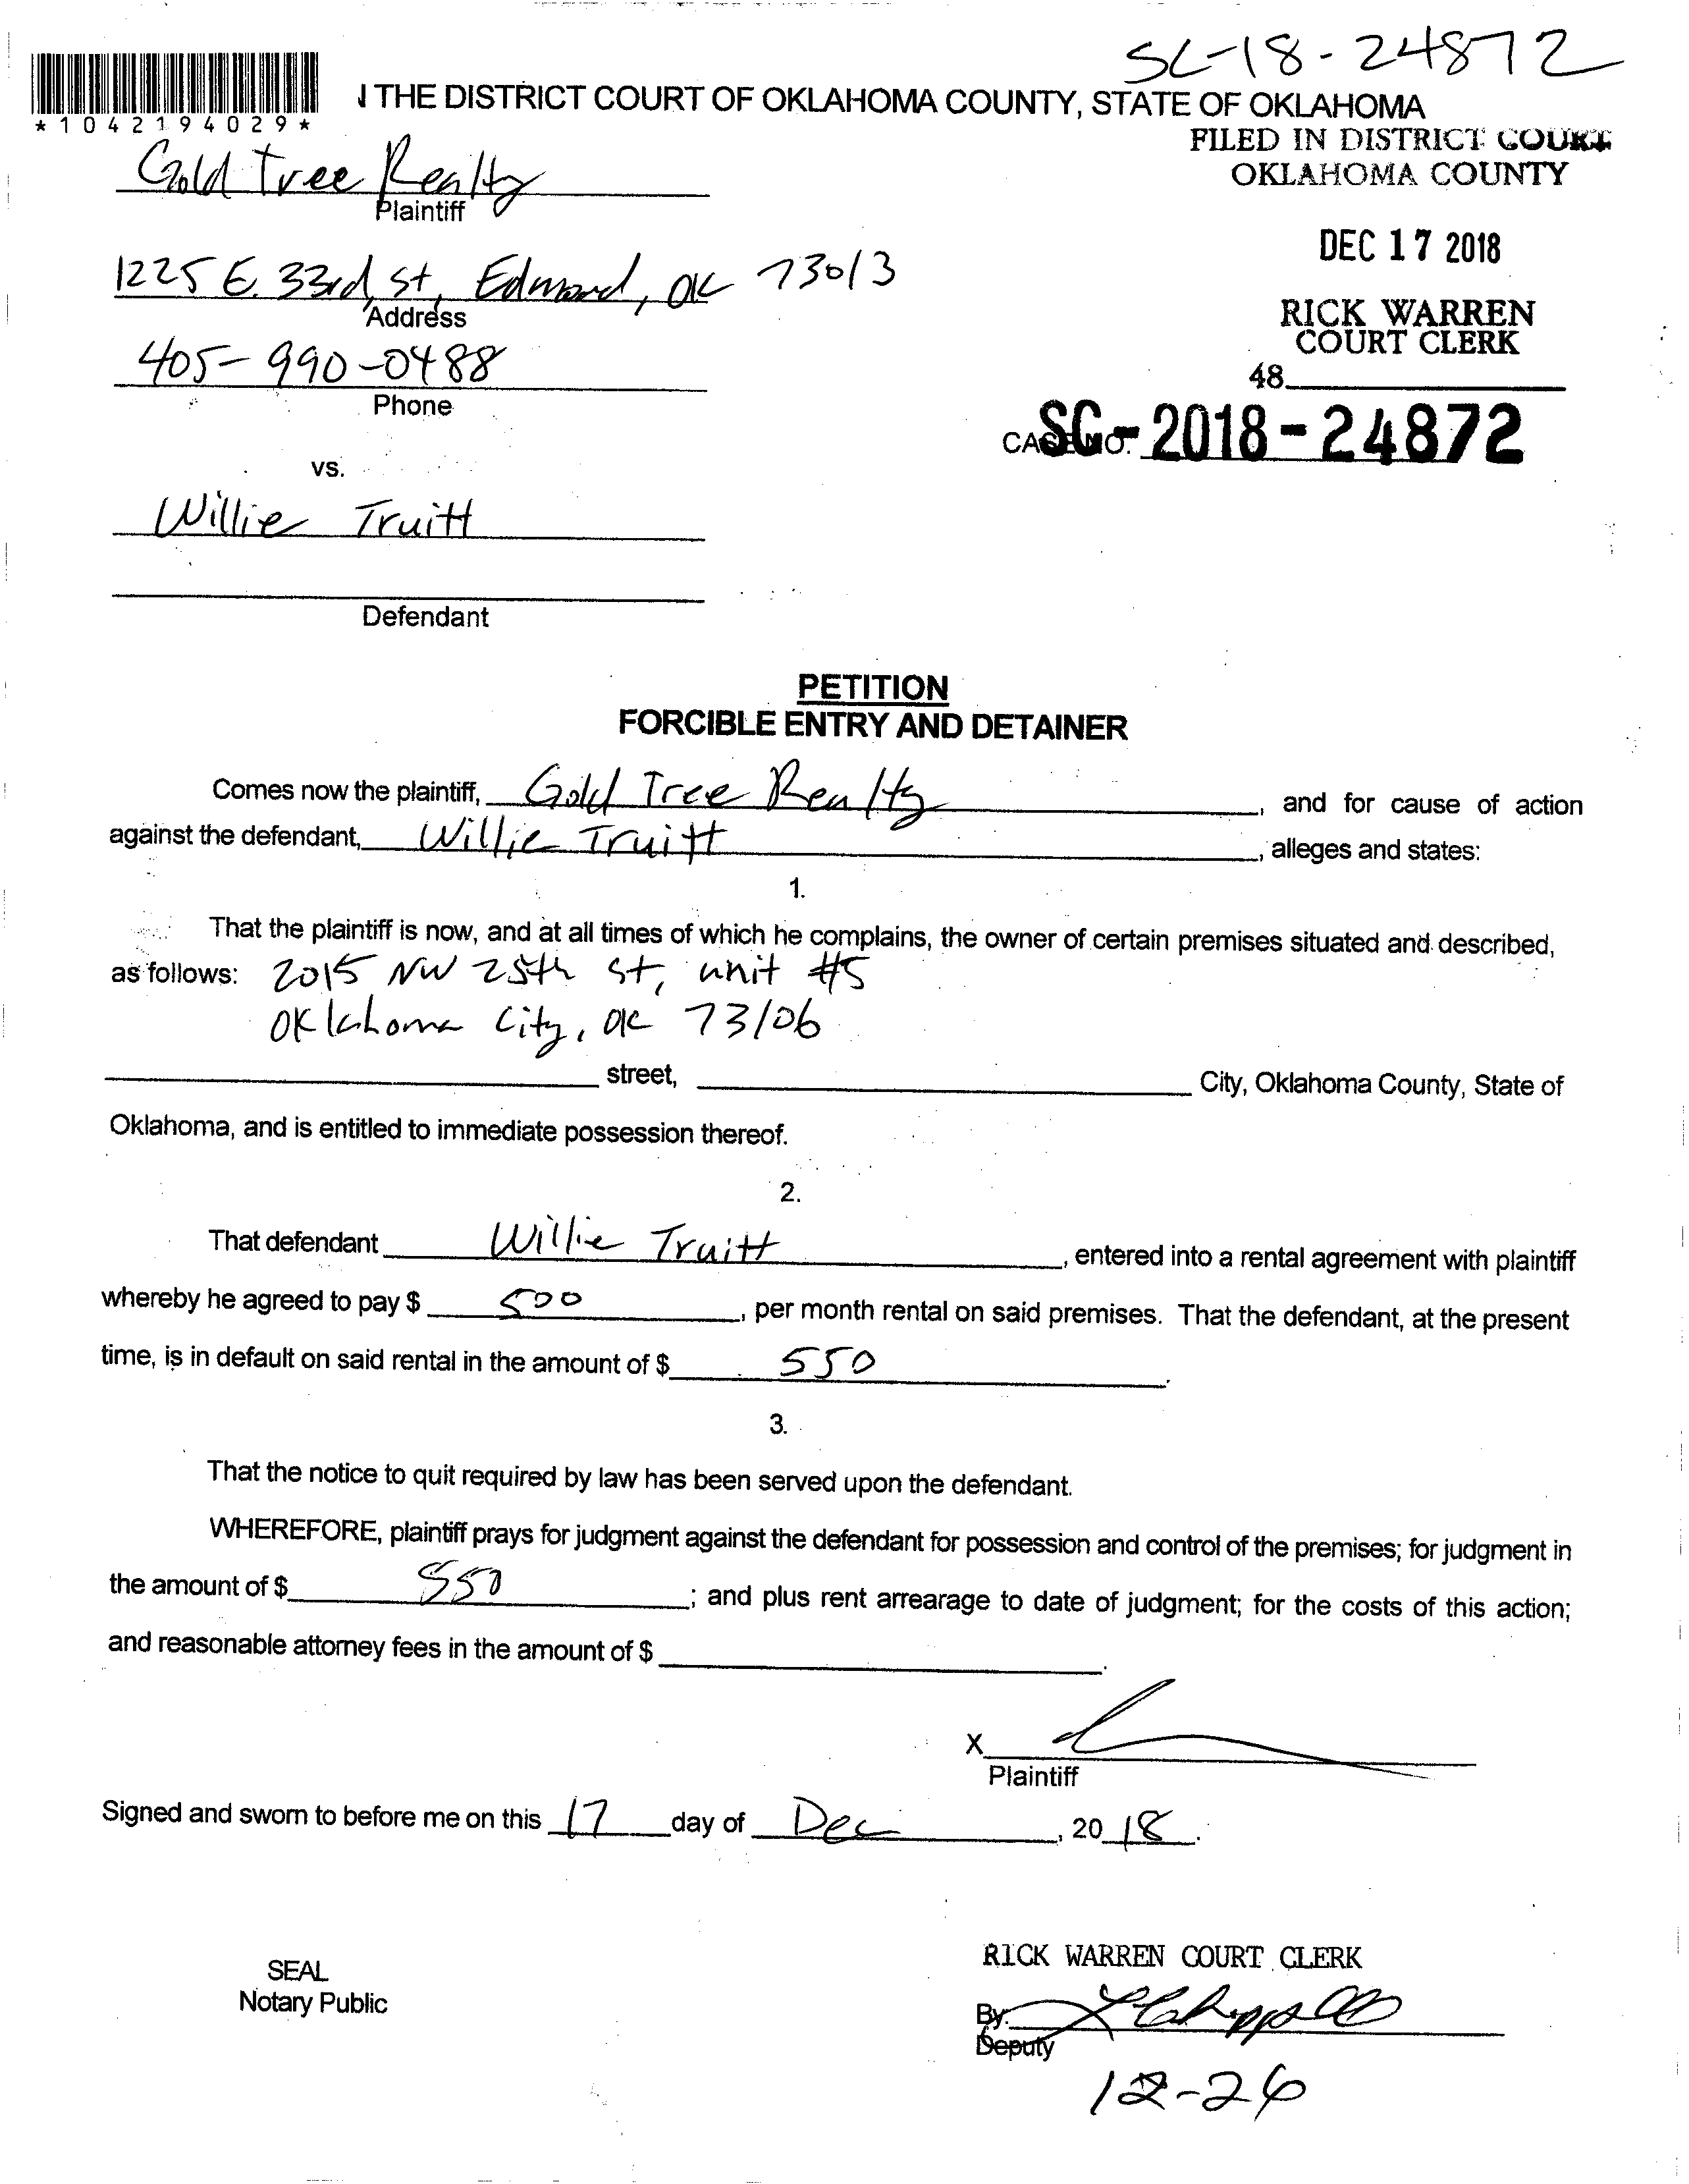 SC-18-24872
THE DISTRICT COURT OF OKLAHOMA COUNTY, STATE OF OKLAHOMA
*1042194029*
FILED IN DISTRICT COURT
OKLAHOMA COUNTY
Gold Tree Realty
Plaintiff
DEC 17 2018
1225 E. 33rd St, Edmond, OK 73013
Address
RICK WARREN
COURT CLERK
405-990-0488
48
Phone
CASE NO. SC-2018-24872
vs.
Willie Truitt
Defendant
PETITION
FORCIBLE ENTRY AND DETAINER
Comes now the plaintiff, Gold Tree Realty, and for cause of action
against the defendant, Willie Truitt, alleges and states:
1.
That the plaintiff is now, and at all times of which he complains, the owner of certain premises situated and described,
as follows: 2015 NW 25th St, unit #5
Oklahoma City, OK 73106
street, City, Oklahoma County, State of
Oklahoma, and is entitled to immediate possession thereof.
2.
That defendant Willie Truitt, entered into a rental agreement with plaintiff
whereby he agreed to pay $ 500, per month rental on said premises. That the defendant, at the present
time, is in default on said rental in the amount of $ 550.
3.
That the notice to quit required by law has been served upon the defendant.
WHEREFORE, plaintiff prays for judgment against the defendant for possession and control of the premises; for judgment in
the amount of $ 550; and plus rent arrearage to date of judgment; for the costs of this action;
and reasonable attorney fees in the amount of $ .
X
Plaintiff
Signed and sworn to before me on this 17 day of Dec, 2018.
RICK WARREN COURT CLERK
SEAL
Notary Public
By:
Deputy
12-26